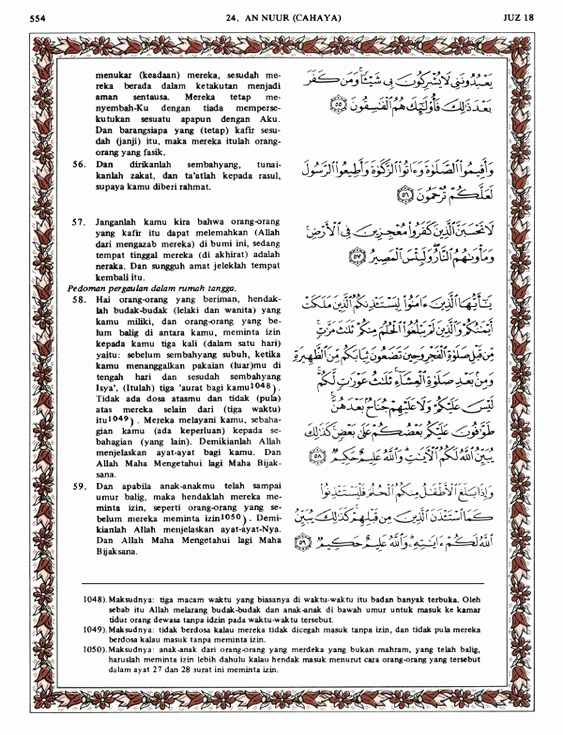 554
24. AN NUUR (CAHAYA)
JUZ 18
menukar (keadaan) mereka, sesudah me-
reka berada dalam ketakutan menjadi
aman sentausa. Mereka tetap me-
nyembah-Ku dengan tiada memperse-
kutukan sesuatu apapun dengan Aku.
Dan barangsiapa yang (tetap) kafir sesu-
dah (janji) itu, maka mereka itulah orang-
orang yang fasik.
56. Dan dirikanlah sembahyang, tunai-
kanlah zakat, dan ta'atlah kepada rasul,
supaya kamu diberi rahmat.
57. Janganlah kamu kira bahwa orang-orang
yang kafir itu dapat melemahkan (Allah
dari mengazab mereka) di bumi ini, sedang
tempat tinggal mereka (di akhirat) adalah
neraka. Dan sungguh amat jeleklah tempat
kembali itu.
Pedoman pergaulan dalam rumah tangga.
58. Hai orang-orang yang beriman, hendak-
lah budak-budak (lelaki dan wanita) yang
kamu miliki, dan orang-orang yang be-
lum balig di antara kamu, meminta izin
kepada kamu tiga kali (dalam satu hari)
yaitu: sebelum sembahyang subuh, ketika
kamu menanggalkan pakaian (luar)mu di
tengah hari dan sesudah sembahyang
Isya'. (Itulah) tiga 'aurat bagi kamu1048).
Tidak ada dosa atasmu dan tidak (pula)
atas mereka selain dari (tiga waktu)
itu1049). Mereka melayani kamu, sebaha-
gian kamu (ada keperluan) kepada se-
bahagian (yang lain). Demikianlah Allah
menjelaskan ayat-ayat bagi kamu. Dan
Allah Maha Mengetahui lagi Maha Bijak-
sana.
59. Dan apabila anak-anakmu telah sampai
umur balig, maka hendaklah mereka me-
minta izin, seperti orang-orang yang se-
belum mereka meminta izin1050). Demi-
kianlah Allah menjelaskan ayat-ayat-Nya.
Dan Allah Maha Mengetahui lagi Maha
Bijaksana.
يَعْبُدُونَنِى لَا يُشْرِكُونَ بِى شَيْـًٔا وَمَن كَفَرَ
بَعْدَ ذَٰلِكَ فَأُو۟لَٰٓئِكَ هُمُ ٱلْفَٰسِقُونَ ٥٥
وَأَقِيمُوا۟ ٱلصَّلَوٰةَ وَءَاتُوا۟ ٱلزَّكَوٰةَ وَأَطِيعُوا۟ ٱلرَّسُولَ
لَعَلَّكُمْ تُرْحَمُونَ ٥٦
لَا تَحْسَبَنَّ ٱلَّذِينَ كَفَرُوا۟ مُعْجِزِينَ فِى ٱلْأَرْضِ
وَمَأْوَىٰهُمُ ٱلنَّارُ وَلَبِئْسَ ٱلْمَصِيرُ ٥٧
يَٰٓأَيُّهَا ٱلَّذِينَ ءَامَنُوا۟ لِيَسْتَـْٔذِنكُمُ ٱلَّذِينَ مَلَكَتْ
أَيْمَٰنُكُمْ وَٱلَّذِينَ لَمْ يَبْلُغُوا۟ ٱلْحُلُمَ مِنكُمْ ثَلَٰثَ مَرَّٰتٍ
مِّن قَبْلِ صَلَوٰةِ ٱلْفَجْرِ وَحِينَ تَضَعُونَ ثِيَابَكُم مِّنَ ٱلظَّهِيرَةِ
وَمِنۢ بَعْدِ صَلَوٰةِ ٱلْعِشَآءِ ثَلَٰثُ عَوْرَٰتٍ لَّكُمْ
لَيْسَ عَلَيْكُمْ وَلَا عَلَيْهِمْ جُنَاحٌۢ بَعْدَهُنَّ
طَوَّٰفُونَ عَلَيْكُم بَعْضُكُمْ عَلَىٰ بَعْضٍ كَذَٰلِكَ
يُبَيِّنُ ٱللَّهُ لَكُمُ ٱلْءَايَٰتِ وَٱللَّهُ عَلِيمٌ حَكِيمٌ ٥٨
وَإِذَا بَلَغَ ٱلْأَطْفَٰلُ مِنكُمُ ٱلْحُلُمَ فَلْيَسْتَـْٔذِنُوا۟
كَمَا ٱسْتَـْٔذَنَ ٱلَّذِينَ مِن قَبْلِهِمْ كَذَٰلِكَ يُبَيِّنُ
ٱللَّهُ لَكُمْ ءَايَٰتِهِۦ وَٱللَّهُ عَلِيمٌ حَكِيمٌ ٥٩
1048). Maksudnya: tiga macam waktu yang biasanya di waktu-waktu itu badan banyak terbuka. Oleh
sebab itu Allah melarang budak-budak dan anak-anak di bawah umur untuk masuk ke kamar
tidur orang dewasa tanpa idzin pada waktu-waktu tersebut.
1049). Maksudnya: tidak berdosa kalau mereka tidak dicegah masuk tanpa izin, dan tidak pula mereka
berdosa kalau masuk tanpa meminta izin.
1050). Maksudnya: anak-anak dari orang-orang yang merdeka yang bukan mahram, yang telah balig,
haruslah meminta izin lebih dahulu kalau hendak masuk menurut cara orang-orang yang tersebut
dalam ayat 27 dan 28 surat ini meminta izin.